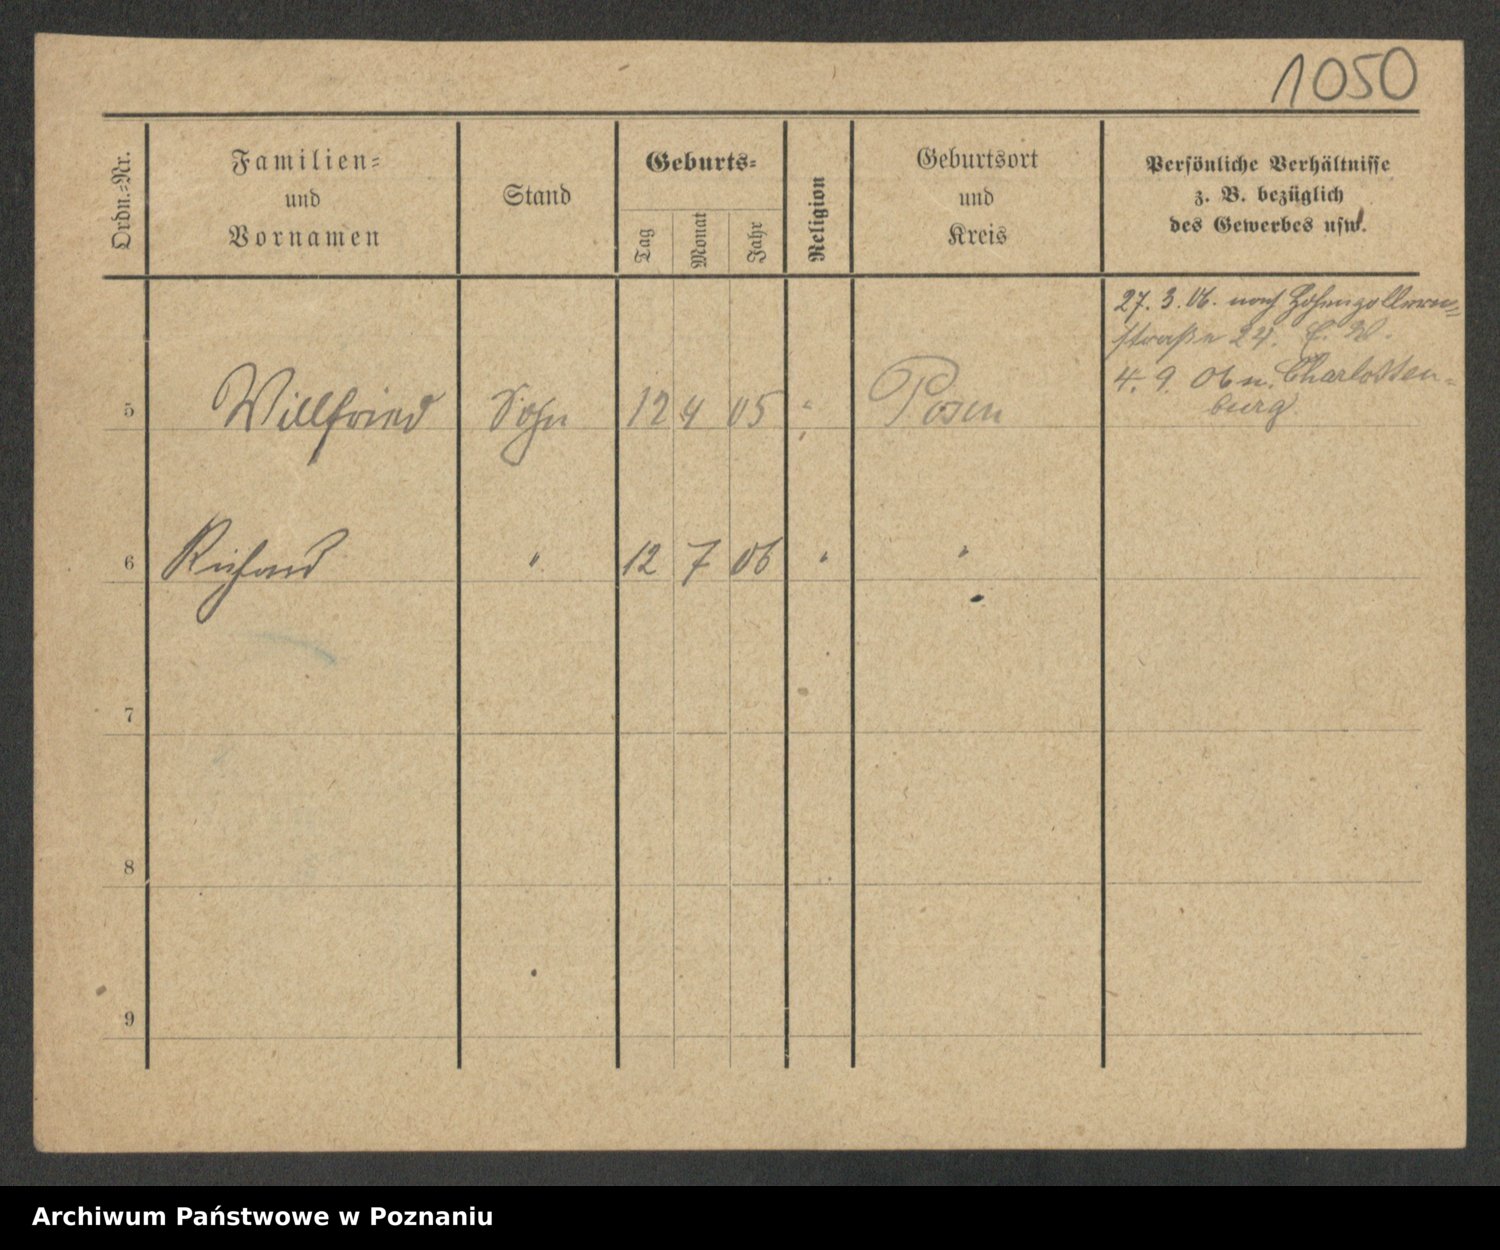 1050
Ordn.-Nr.
Familien-
und
Vornamen
Stand
Geburts-
Tag
Monat
Jahr
Religion
Geburtsort
und
Kreis
Persönliche Verhältnisse
z. B. bezüglich
des Gewerbes usw.
27. 3. 06. nach Hohenzollern-
straße 24.
4. 9. 06 n. Charlotten-
burg
5 Willfried Sohn 12 4 05 " Posen
6 Richard " 12 7 06 " "
7
8
9
Archiwum Państwowe w Poznaniu